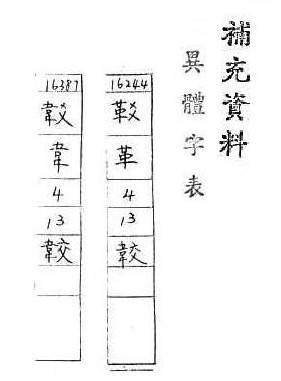 補充資料
異體字表
16244
革
4
13
16387
韋
4
13